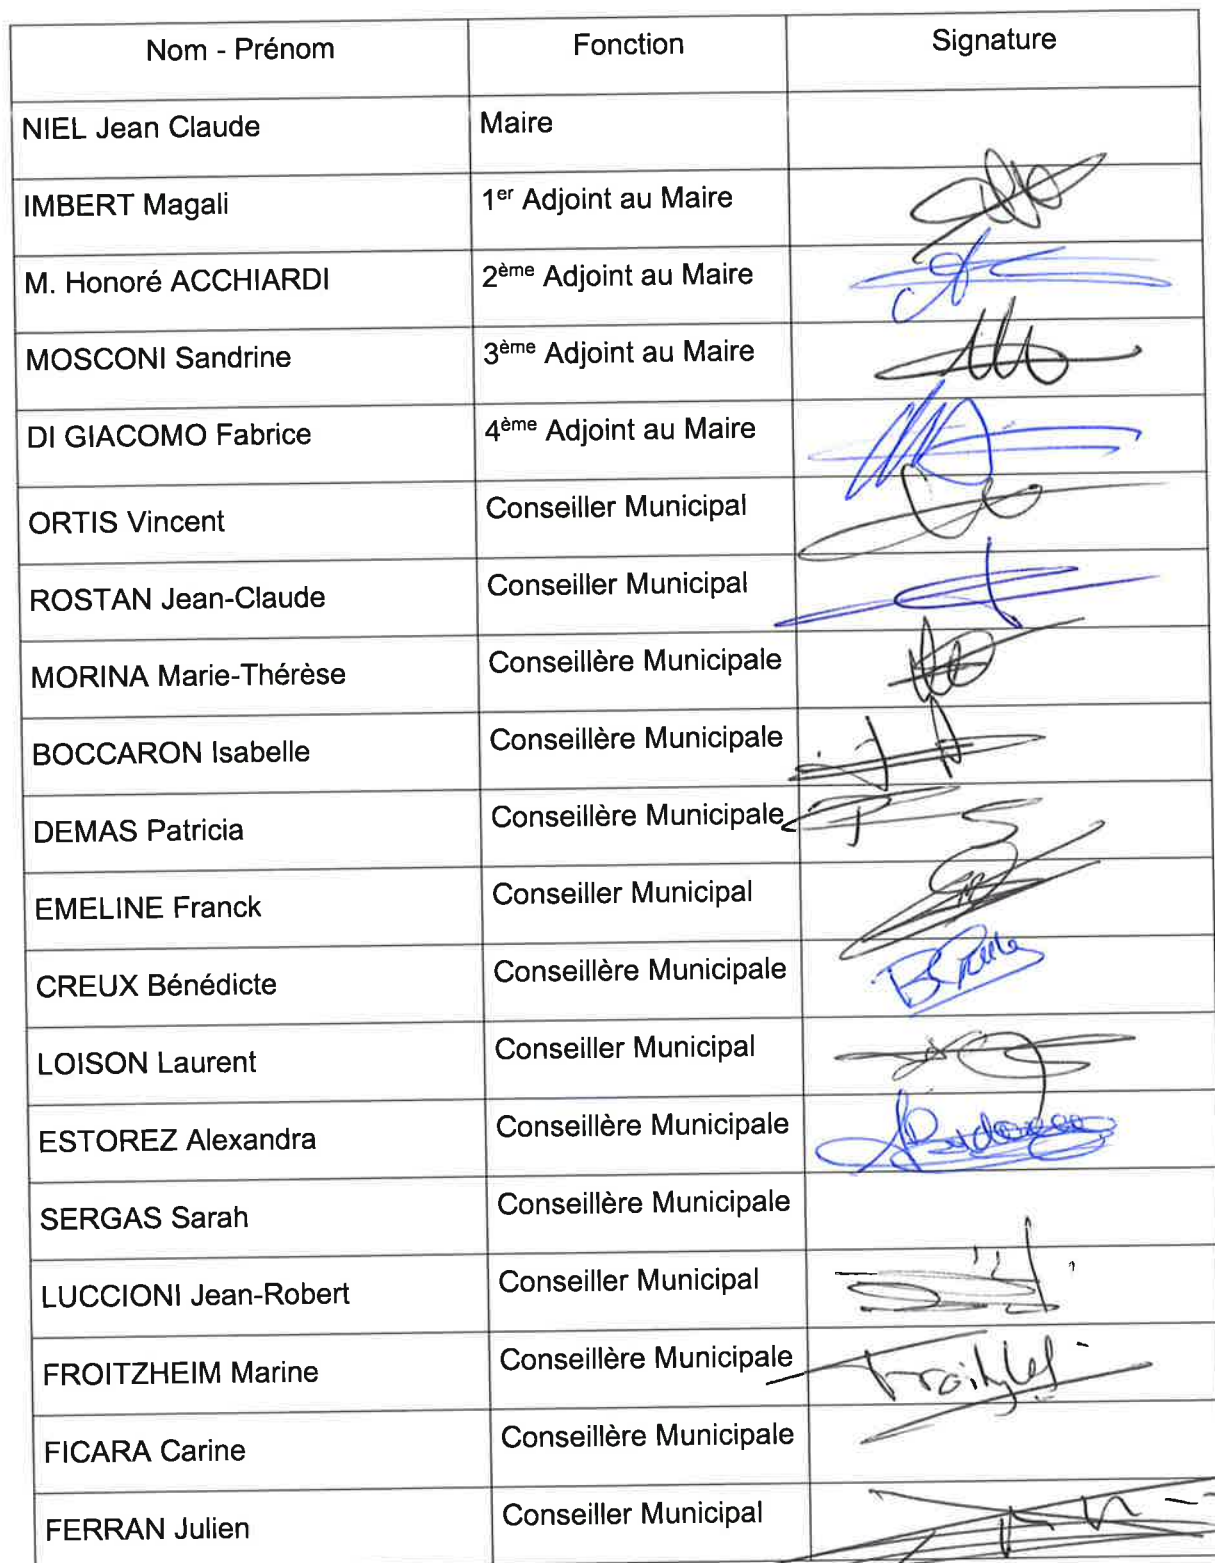 Nom - Prénom Fonction Signature
NIEL Jean Claude Maire
IMBERT Magali 1er Adjoint au Maire
M. Honoré ACCHIARDI 2ème Adjoint au Maire
MOSCONI Sandrine 3ème Adjoint au Maire
DI GIACOMO Fabrice 4ème Adjoint au Maire
ORTIS Vincent Conseiller Municipal
ROSTAN Jean-Claude Conseiller Municipal
MORINA Marie-Thérèse Conseillère Municipale
BOCCARON Isabelle Conseillère Municipale
DEMAS Patricia Conseillère Municipale
EMELINE Franck Conseiller Municipal
CREUX Bénédicte Conseillère Municipale
LOISON Laurent Conseiller Municipal
ESTOREZ Alexandra Conseillère Municipale
SERGAS Sarah Conseillère Municipale
LUCCIONI Jean-Robert Conseiller Municipal
FROITZHEIM Marine Conseillère Municipale
FICARA Carine Conseillère Municipale
FERRAN Julien Conseiller Municipal